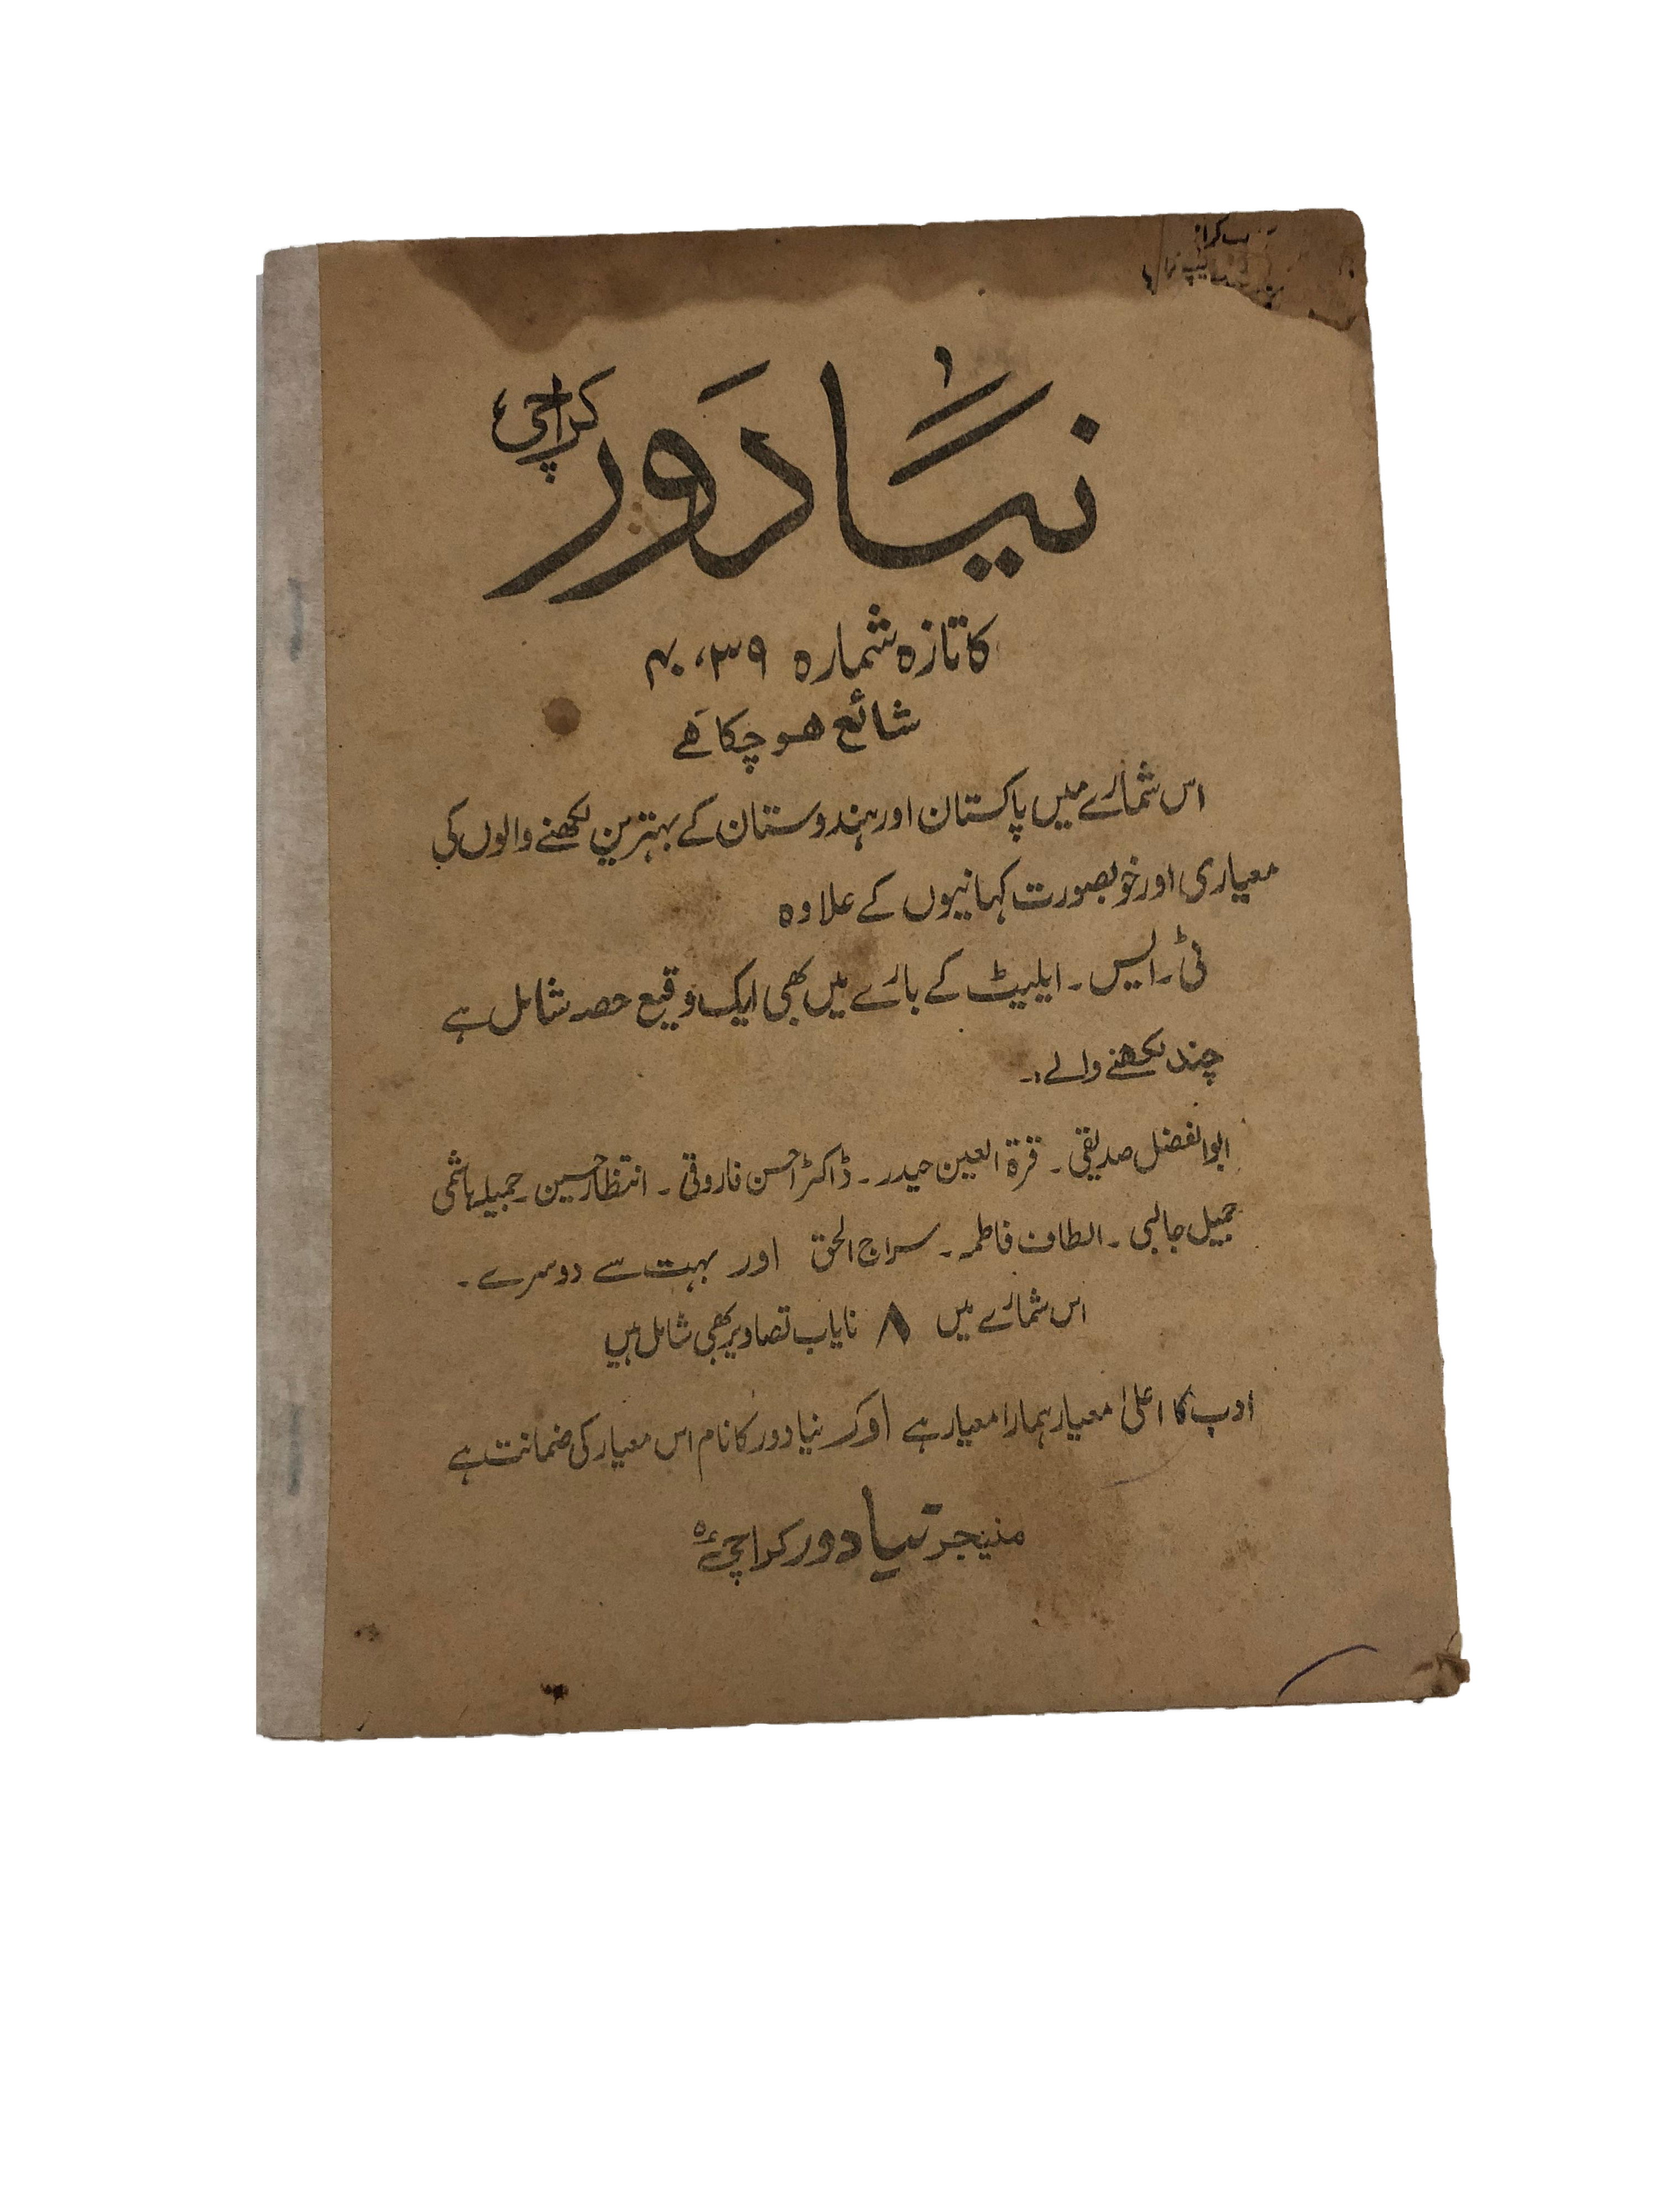 نیا دَور
کراچی
کا تازہ شمارہ ۳۹، ۴۰
شائع ہو چکا ہے
اس شمارے میں پاکستان اور ہندوستان کے بہترین لکھنے والوں کی
معیاری اور خوبصورت کہانیوں کے علاوہ
ٹی۔ ایس۔ ایلیٹ کے بارے میں بھی ایک وقیع حصہ شامل ہے
چند لکھنے والے:۔
ابوالفضل صدیقی۔ قرۃ العین حیدر۔ ڈاکٹر احسن فاروقی۔ انتظار حسین۔ جمیلہ ہاشمی
جمیل جالبی۔ الطاف فاطمہ۔ سراج الحق اور بہت سے دوسرے۔
اس شمارے میں ۸ نایاب تصاویر بھی شامل ہیں
ادب کا اعلیٰ معیار ہمارا معیار ہے اور نیا دور کا نام اس معیار کی ضمانت ہے
منیجر نیا دور کراچی ۵